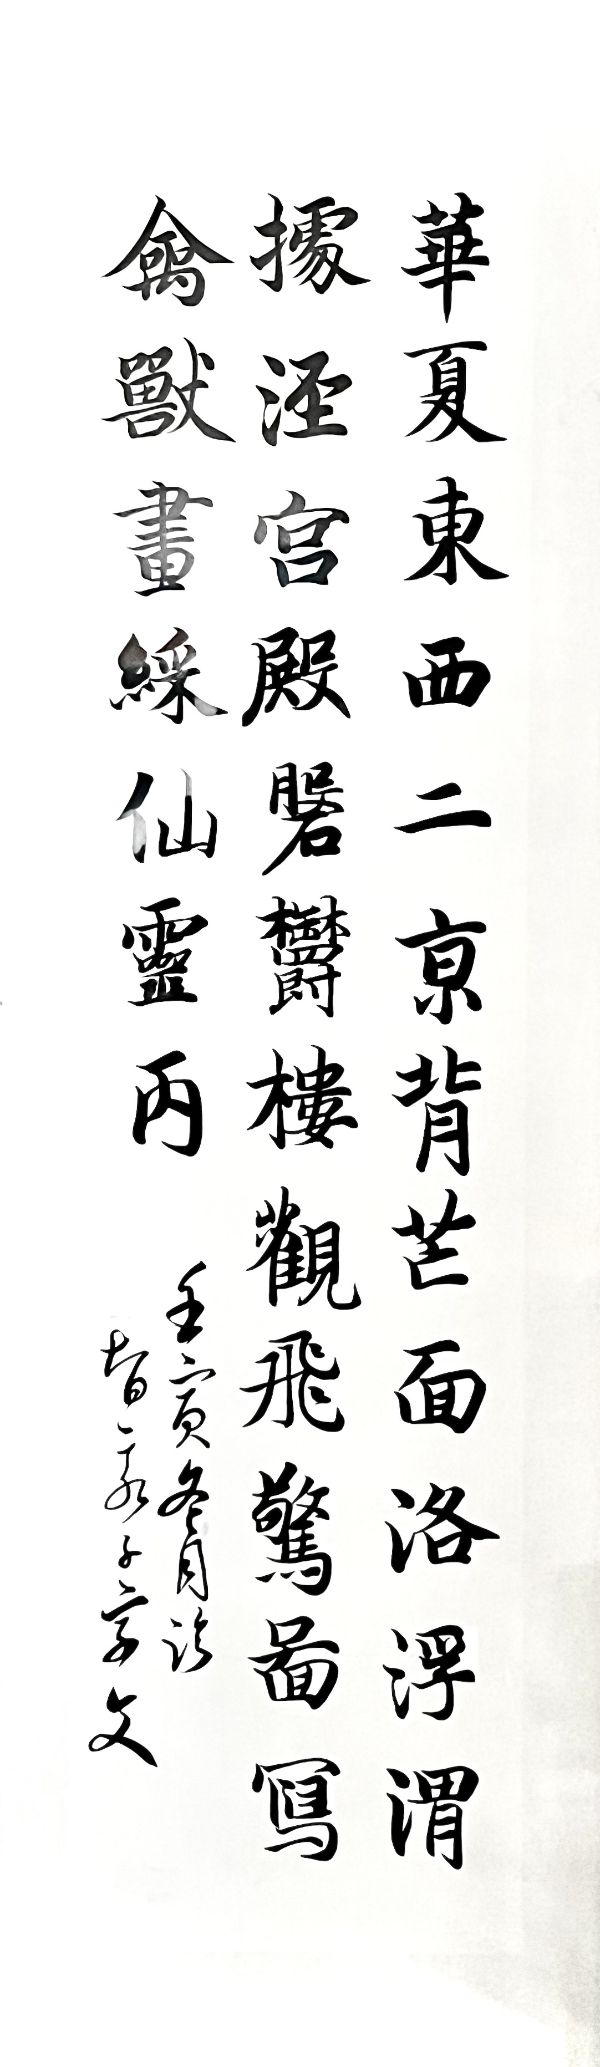 華夏東西二京背芒面洛浮渭
據涇宮殿磐鬱樓觀飛驚啚寫
禽獸畫綵仙靈丙
壬寅冬月詠
智永千字文